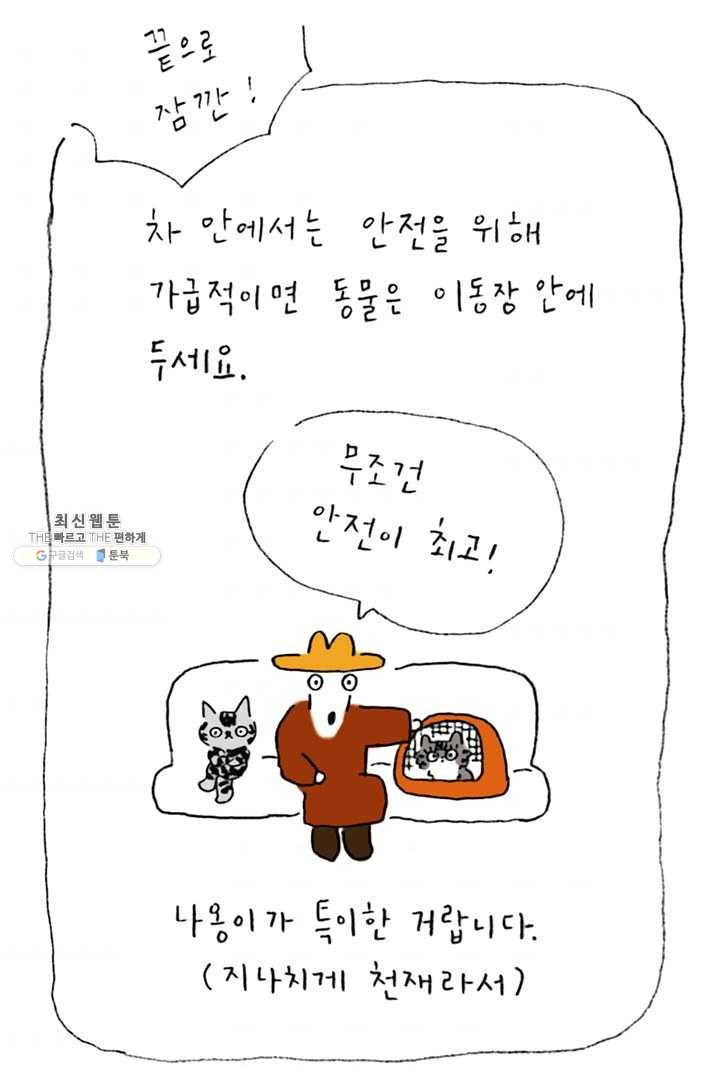 끝으로
잠깐!
차 안에서는 안전을 위해
가급적이면 동물은 이동장 안에
두세요.
무조건
안전이 최고!
최신웹툰
THE 빠르고 THE 편하게
G 구글검색 툰북
나옹이가 특이한 거랍니다.
(지나치게 천재라서)